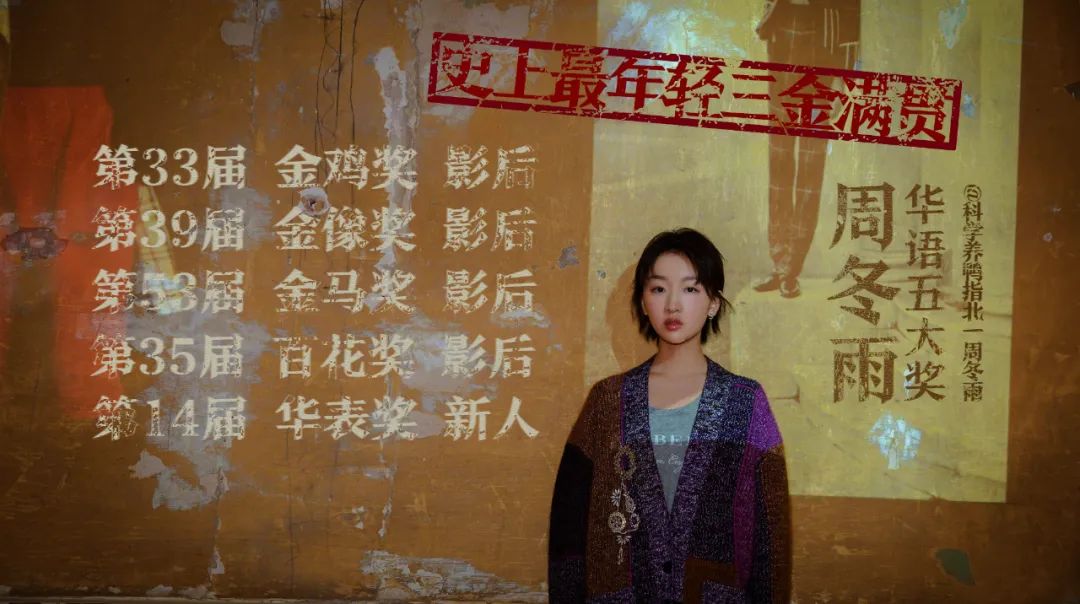 史上最年轻三金满贯
第33届 金鸡奖 影后
第39届 金像奖 影后
第53届 金马奖 影后
第35届 百花奖 影后
第14届 华表奖 新人
周冬雨
华语五大奖
@科学养鸭指北一周冬雨